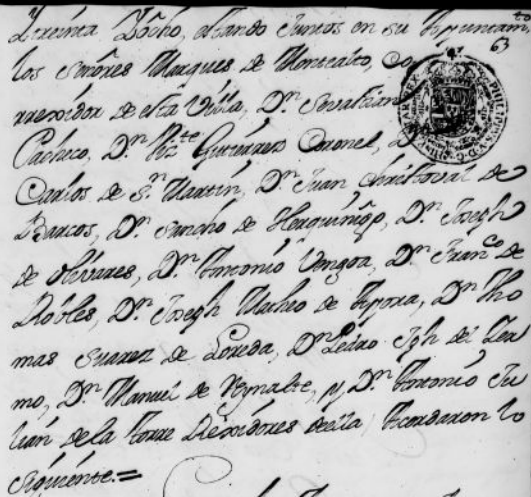 Y treinta y ocho, estando Juntos en su Ayuntam.to
63
los Señores Marques de Montealto, Co
rrexidor de esta Villa, D.n Sevastian
Pacheco, D.n Viz.te Gutierrez Coronel, D.n
Carlos de S.n Martin, D.n Juan Christoval de
Barcos, D.n Sancho de Herquiñigo, D.n Joseph
de Olivares, D.n Antonio Vengoa, D.n Fran.co de
Robles, D.n Joseph Matheo de Aypora, D.n Tho
mas Suarez de Loreda, D.n Pedro Jph del Yer
mo, D.n Manuel de Reynalte, y D.n Antonio Ju
lian dela Torre Rexidores deella, Acordaron lo
siguiente.=